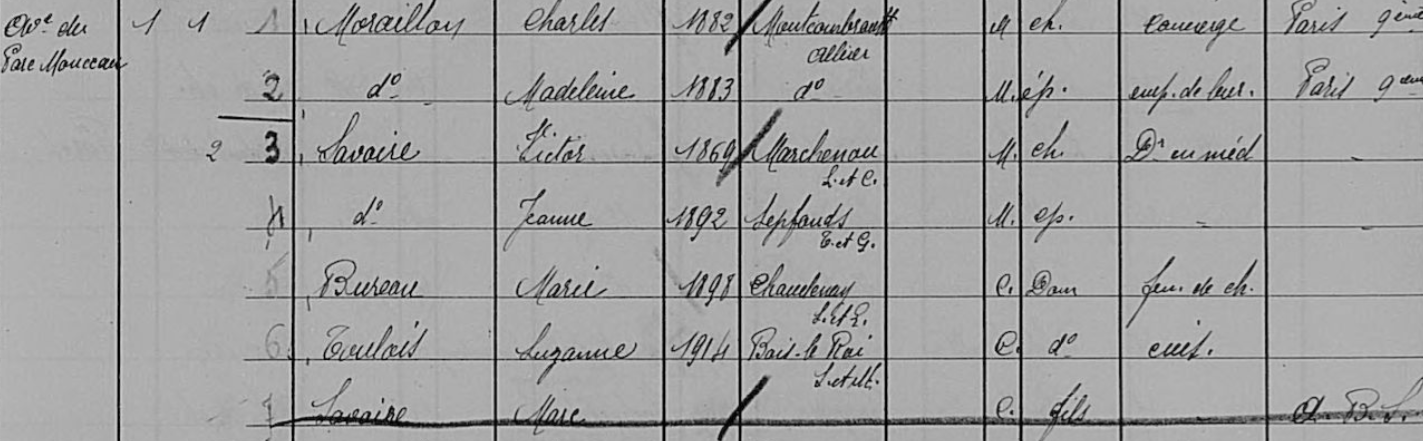 Ave du 1 1 1 Moraillon Charles 1882 Montcombroux M ch. concierge Paris 9ème
Parc Monceau Allier
2 do Madeleine 1883 do M. ép. emp. de bur. Paris 9ème
2 3 Savoire Victor 1869 Marchenoir M. ch. Dr en méd -
L. et C.
4 do Jeanne 1892 Septfonds M. ep. - -
T. et G.
5 Bureau Marie 1898 Chaudenay C. Dom fem. de ch.
S. et L.
6. Toulois Suzanne 1914 Bois-le Roi C. do cuis.
S. et M.
7 Savoire Marc C. fils